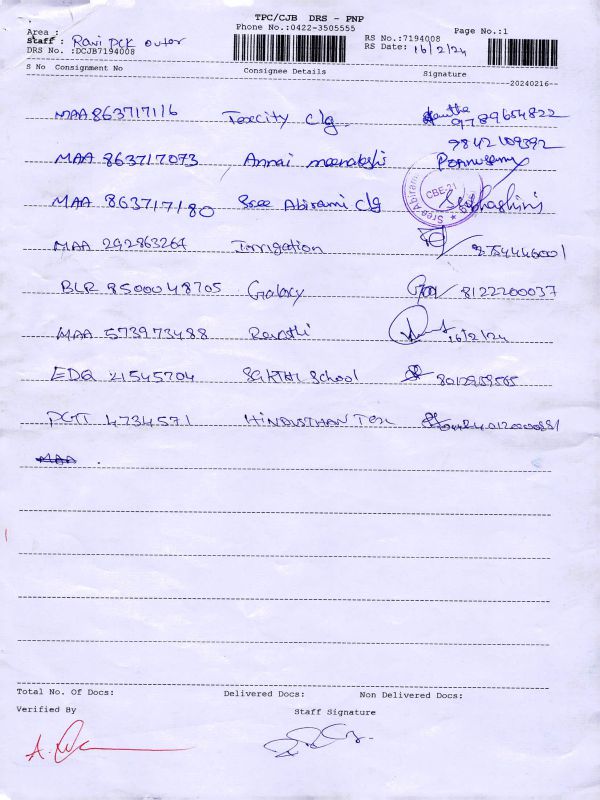 TPC/CJB DRS - PNP
Phone No.:0422-3505555
Page No.:1
Area :
Staff : Ravi pck outer
RS No.:7194008
DRS No. :DCJB7194008
RS Date: 16/2/24
S No Consignment No Consignee Details Signature
20240216
MAA 863717116 clg 9789654822
9842109392
MAA 863717073 Annai meenakshi Ponnusamy
MAA 863717180 Sree Abirami clg
Sree Abirami CBE-21
MAA 292863264 Irrigation 8754446001
BLR 9500048705 Galaxy 8122200037
MAA 573973488 Revathi 16/2/24
EDQ 21545704 Sakthi School 8012959565
4734571 HINDUSTHAN Tex
MAA .
Total No. Of Docs: Delivered Docs: Non Delivered Docs:
Verified By Staff Signature